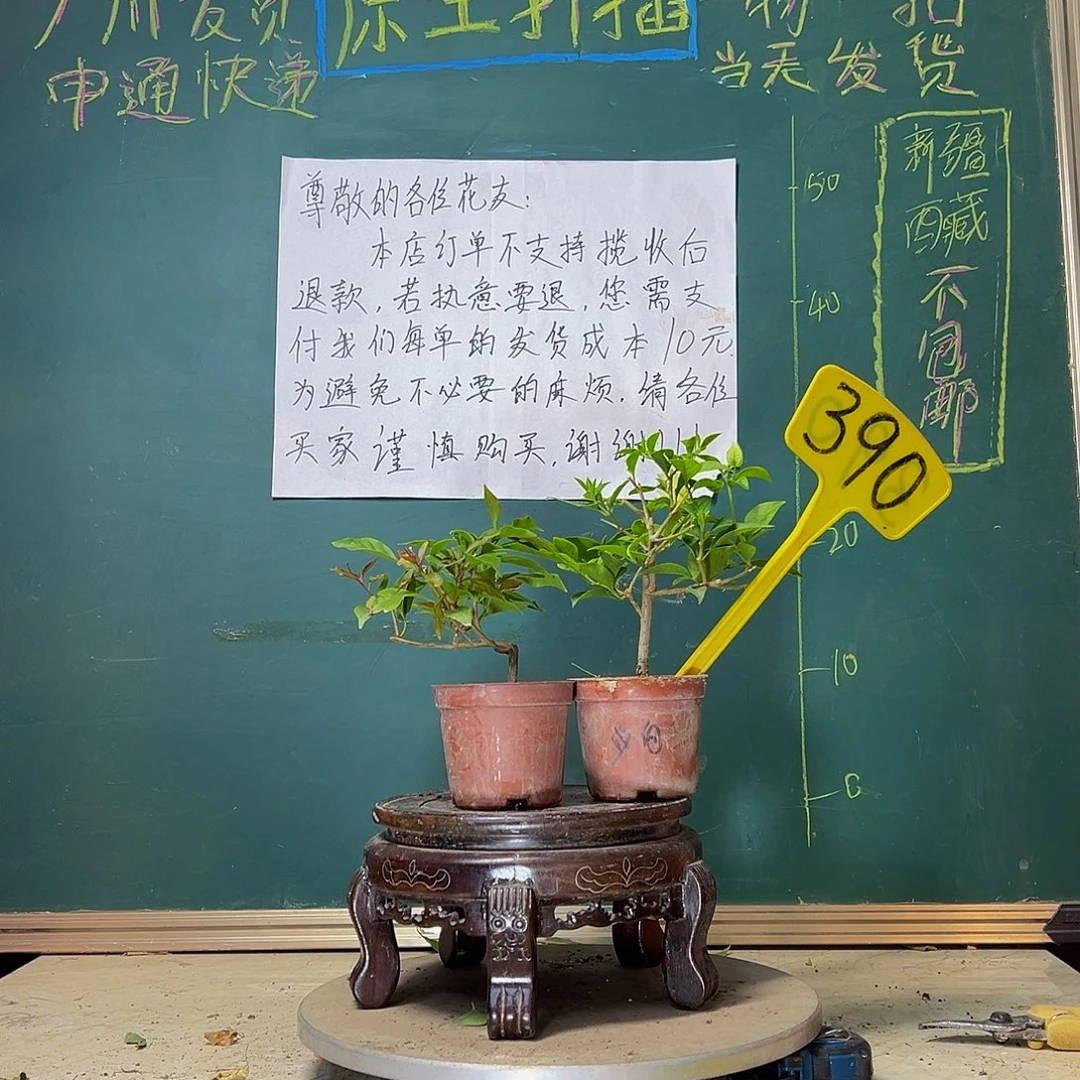 广州发货
原土扦插
一物一拍
申通快递
当天发货
尊敬的各位花友:
本店订单不支持揽收后
退款,若执意要退,您需支
付我们每单的发货成本10元.
为避免不必要的麻烦.请各位
买家谨慎购买,谢谢!!!
新疆
西藏
不包邮
50
40
390
20
10
0